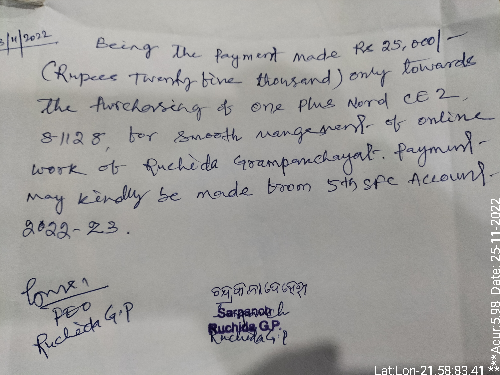 3/11/2022
Being the Payment made Rs 25,000/-
(Rupees Twenty five thousand) only towards
the Purchasing of one Plus Nord CE 2,
8-1128, for smooth mangement of online
work of Ruchida Grampanchayat. Payment
may kindly be made from 5th SFC Account
2022-23.
PEO
Ruchida G.P
ଚନ୍ଦ୍ରକଳା ଦେହେରୀ
Sarpanch
Ruchida G.P.
Ruchida G.P
Lat:Lon-21.58:83.41
***Acur:5.98 Date:25-11-2022